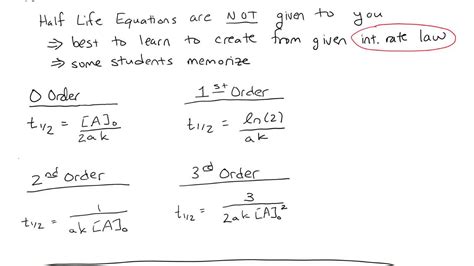 Half Life Equations are NOT given to you
⇒ best to learn to create from given int. rate law
⇒ some students memorize
0 Order
t1/2 = [A]₀ / 2ak
1st Order
t1/2 = ln(2) / ak
2nd Order
t1/2 = 1 / ak[A]₀
3rd Order
t1/2 = 3 / 2ak[A]₀²